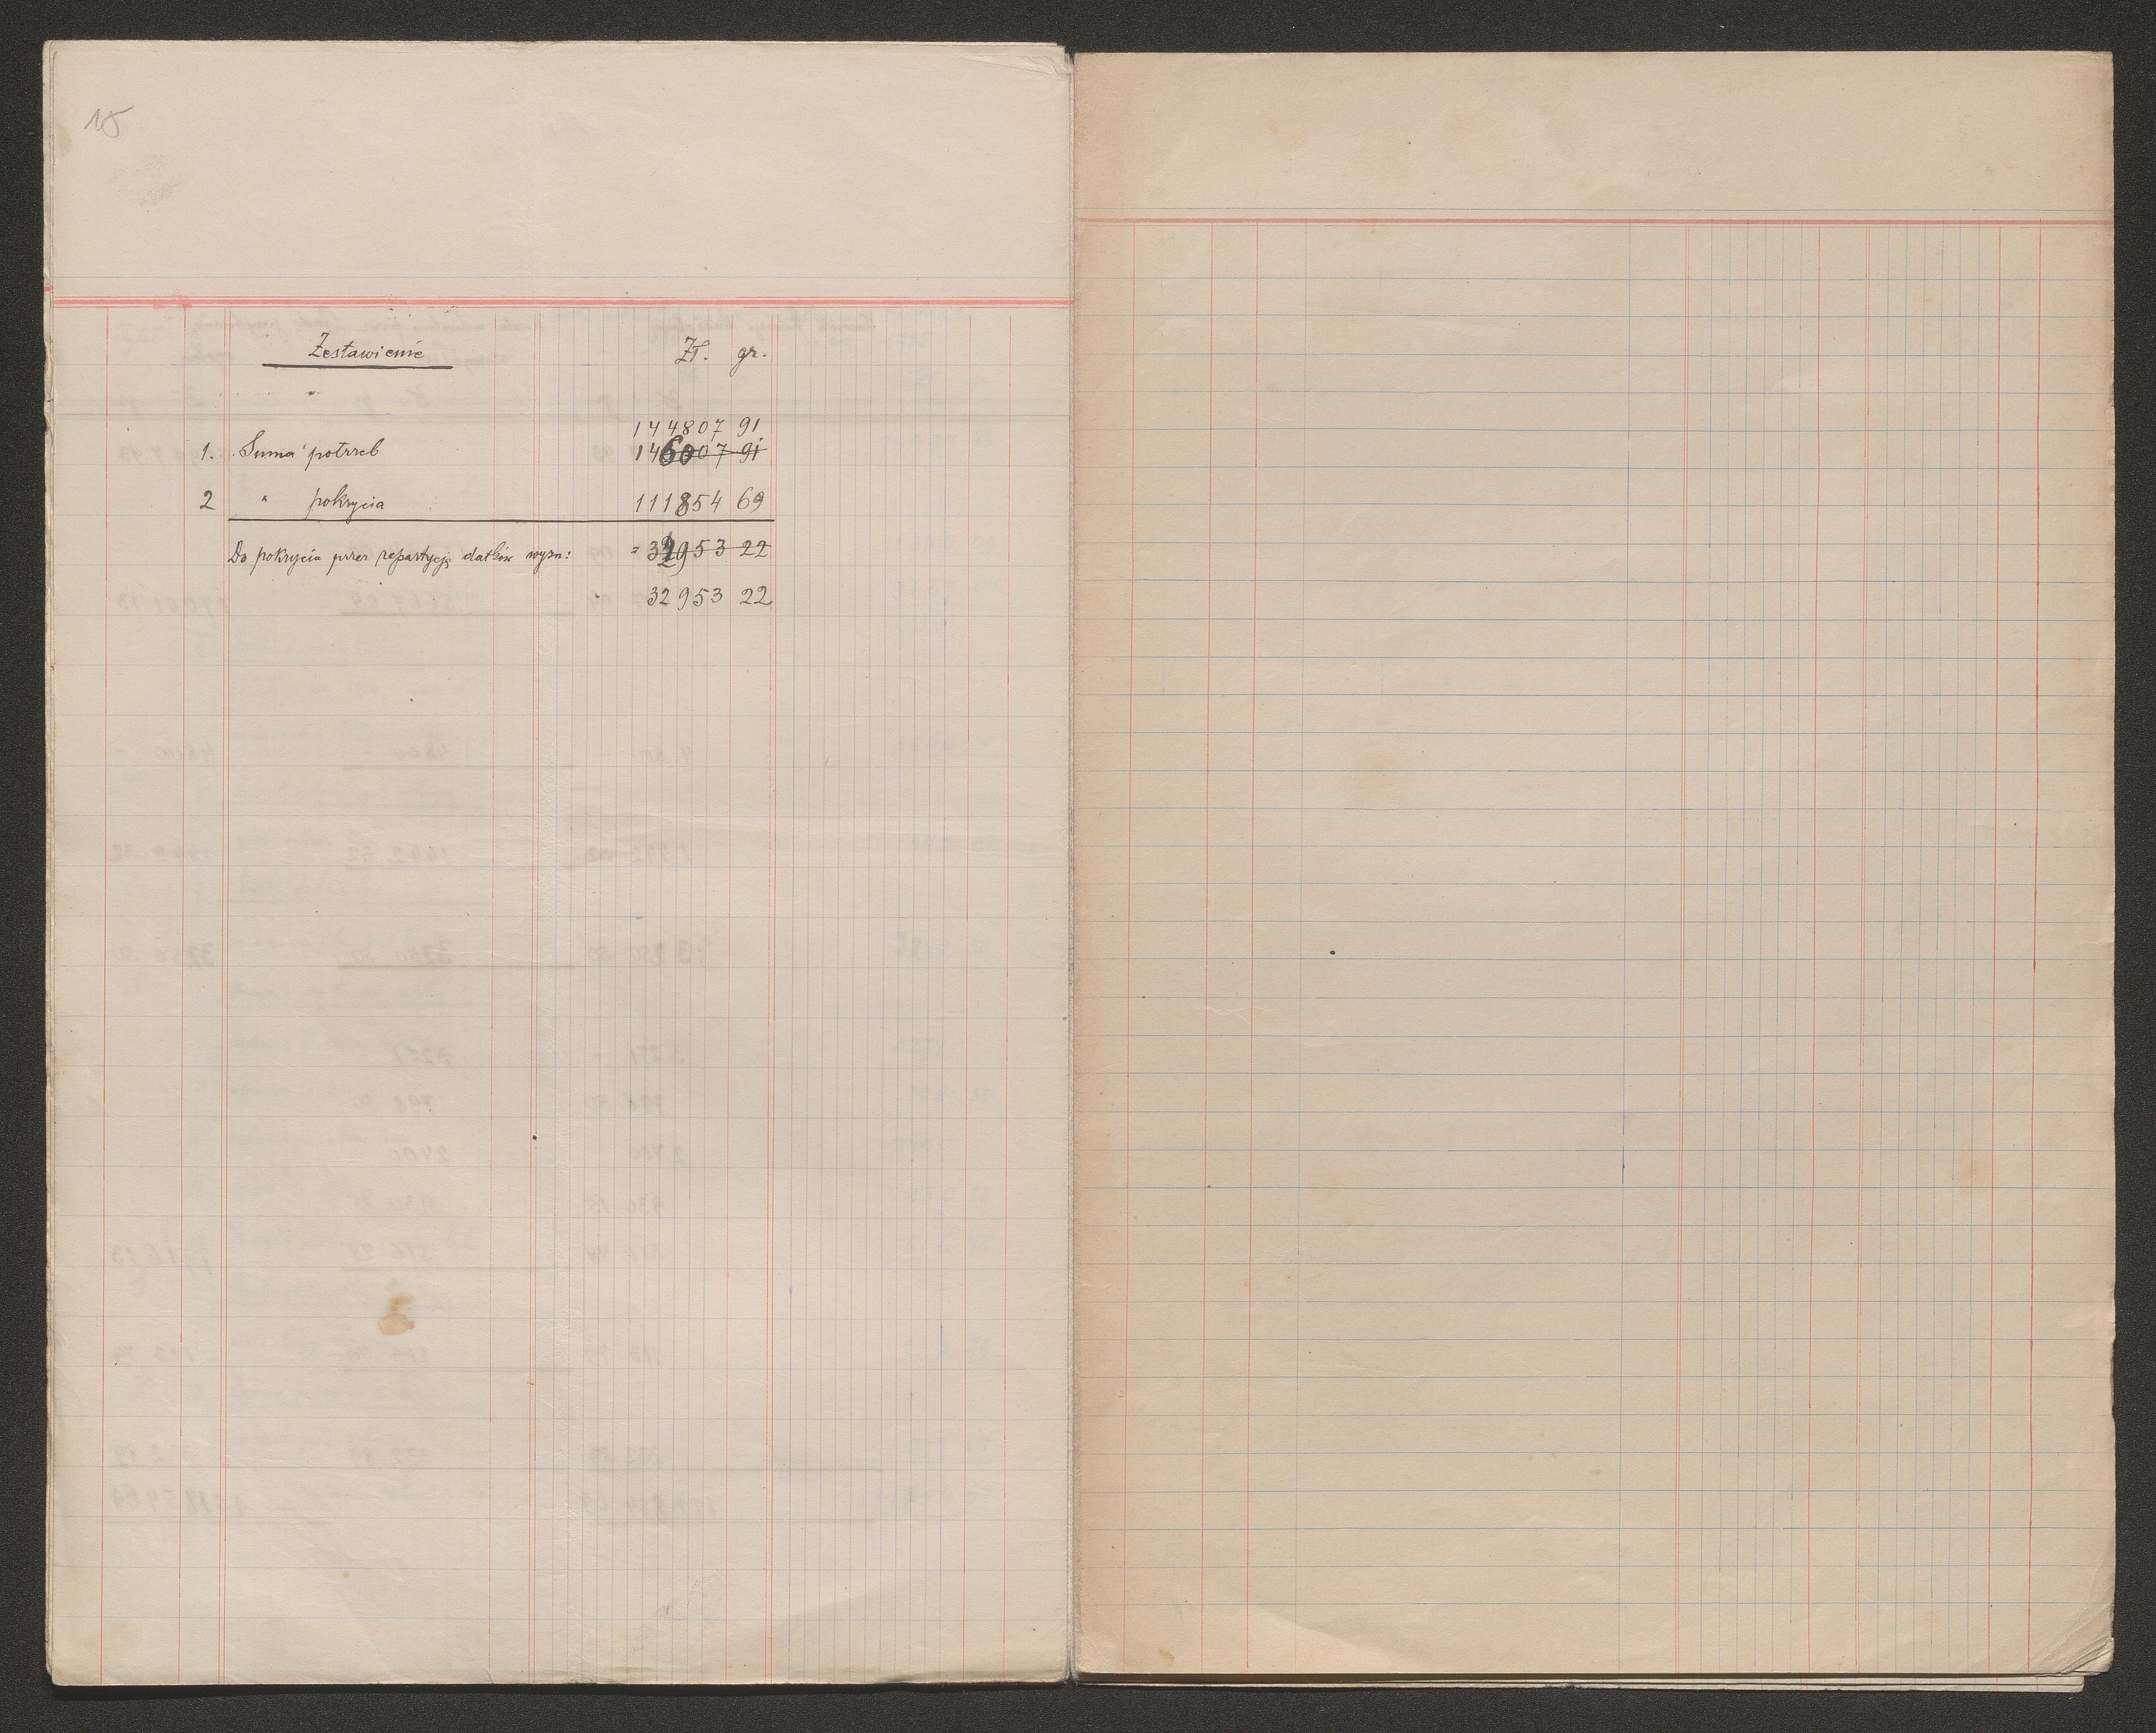 15
Zestawienie Zł. gr.
144807 91
1. Suma potrzeb 146007 91
2 " pokrycia 111854 69
Do pokrycia przez repartycję datków wyzn: =
32953 22